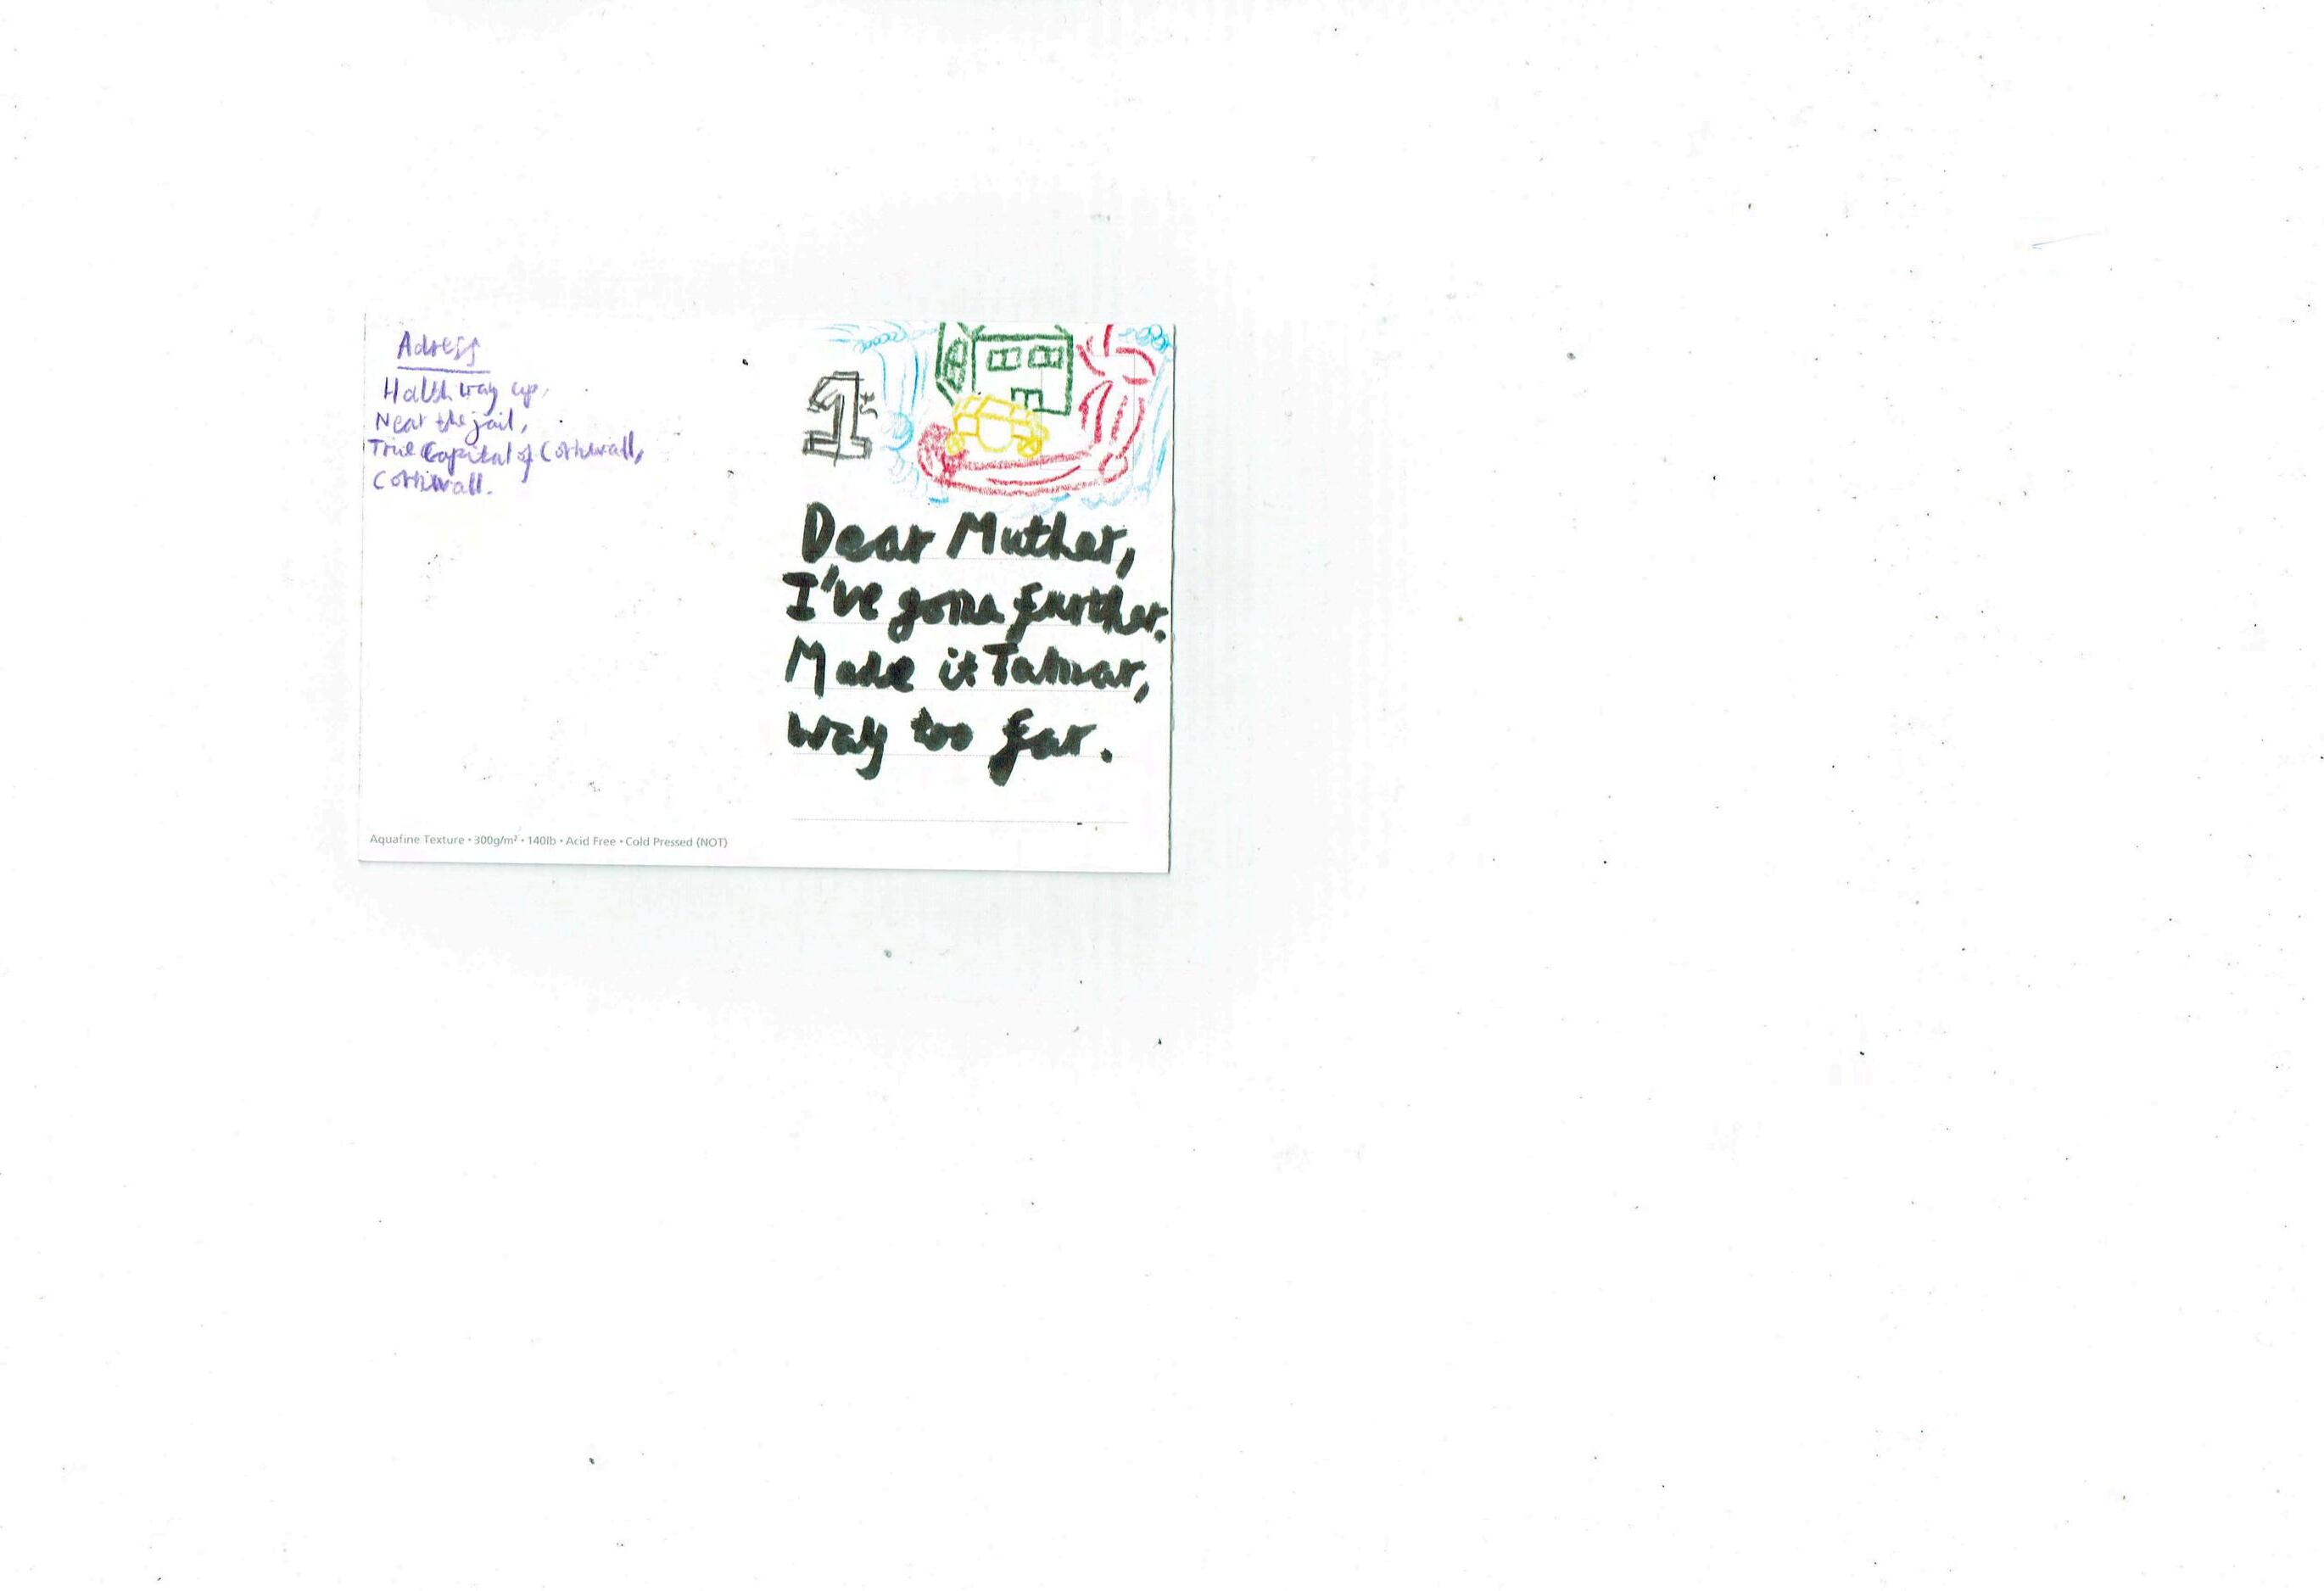 Adress
Halsh way up,
Near the jail,
True Capital of Cornwall,
Cornwall.
1st
Dear Muther,
I've gone further.
Made it Tamar,
way too far.
Aquafine Texture • 300g/m² • 140lb • Acid Free • Cold Pressed (NOT)